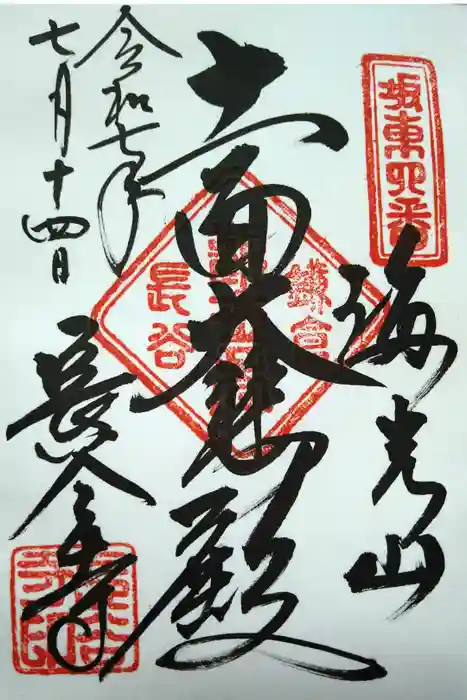 坂東四番
海光山
十一面大悲殿
鎌倉
長谷
長谷寺
令和七年
七月十四日